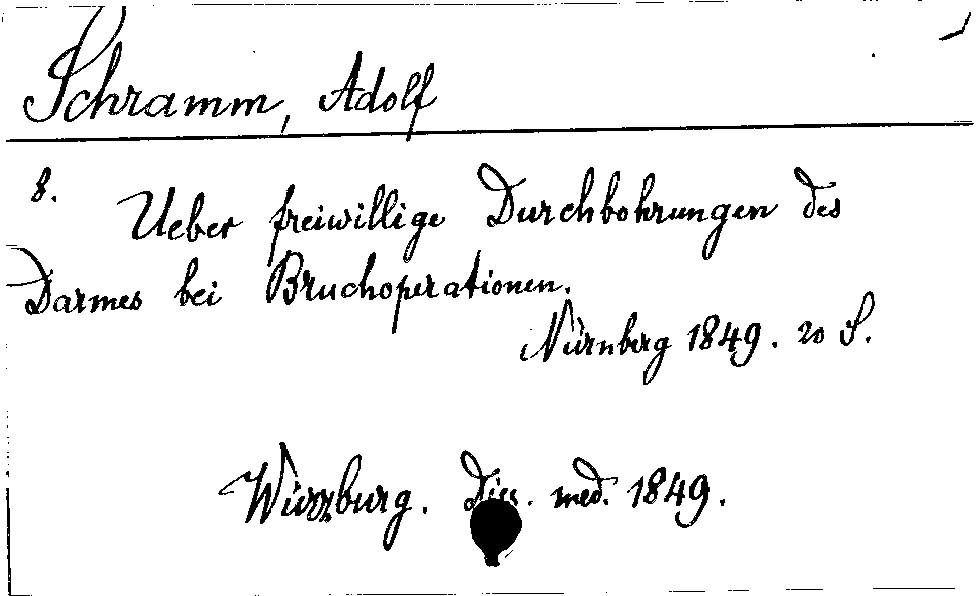 Schramm, Adolf
8. Ueber freiwillige Durchbohrungen des
Darmes bei Bruchoperationen.
Nürnberg 1849. 20 S.
Würzburg. Diss. med. 1849.